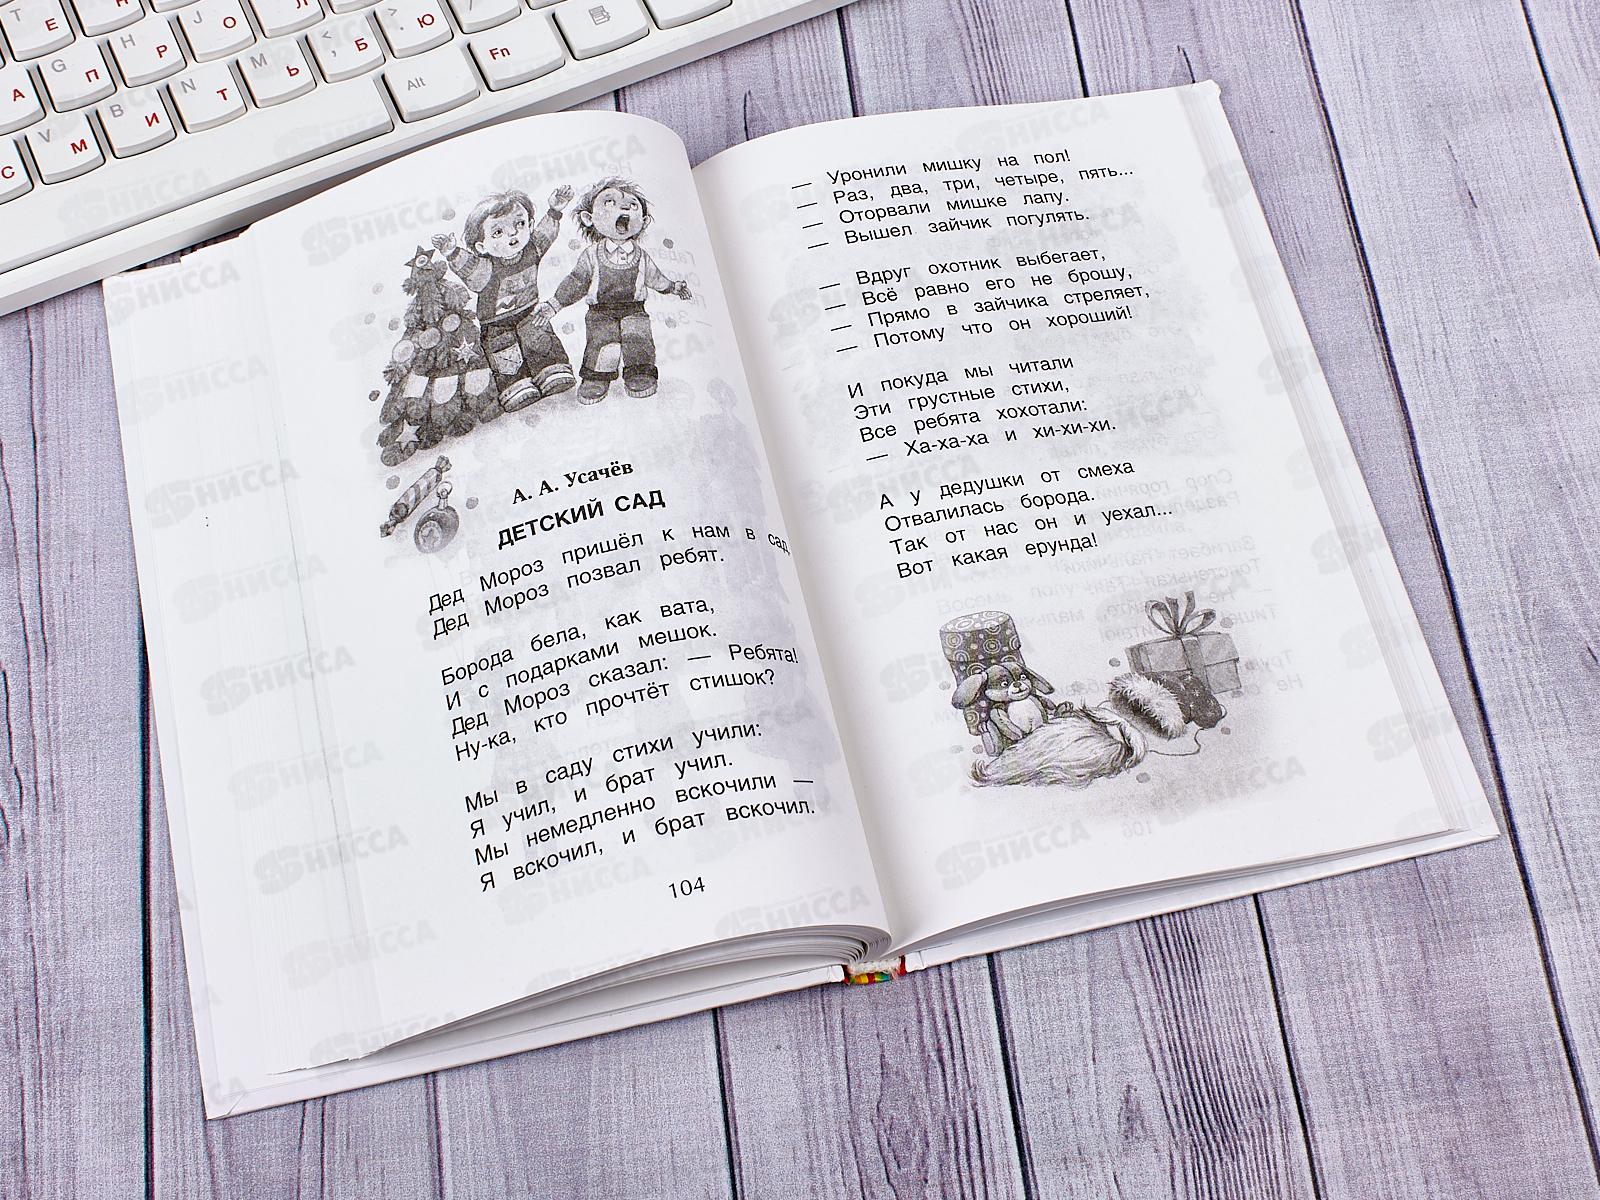 А. А. Усачёв
ДЕТСКИЙ САД
Дед Мороз пришёл к нам в сад,
Дед Мороз позвал ребят.
Борода бела, как вата,
И с подарками мешок.
Дед Мороз сказал: — Ребята!
Ну-ка, кто прочтёт стишок?
Мы в саду стихи учили:
Я учил, и брат учил.
Мы немедленно вскочили —
Я вскочил, и брат вскочил.
104
— Уронили мишку на пол!
— Раз, два, три, четыре, пять...
— Оторвали мишке лапу.
— Вышел зайчик погулять.
— Вдруг охотник выбегает,
— Всё равно его не брошу,
— Прямо в зайчика стреляет,
— Потому что он хороший!
И покуда мы читали
Эти грустные стихи,
Все ребята хохотали:
— Ха-ха-ха и хи-хи-хи.
А у дедушки от смеха
Отвалилась борода.
Так от нас он и уехал...
Вот какая ерунда!
T Е Н Г
H Р J О Л > . Ю
А G П N Т M Ь < , Б Alt Fn
С V М B И
НИССА